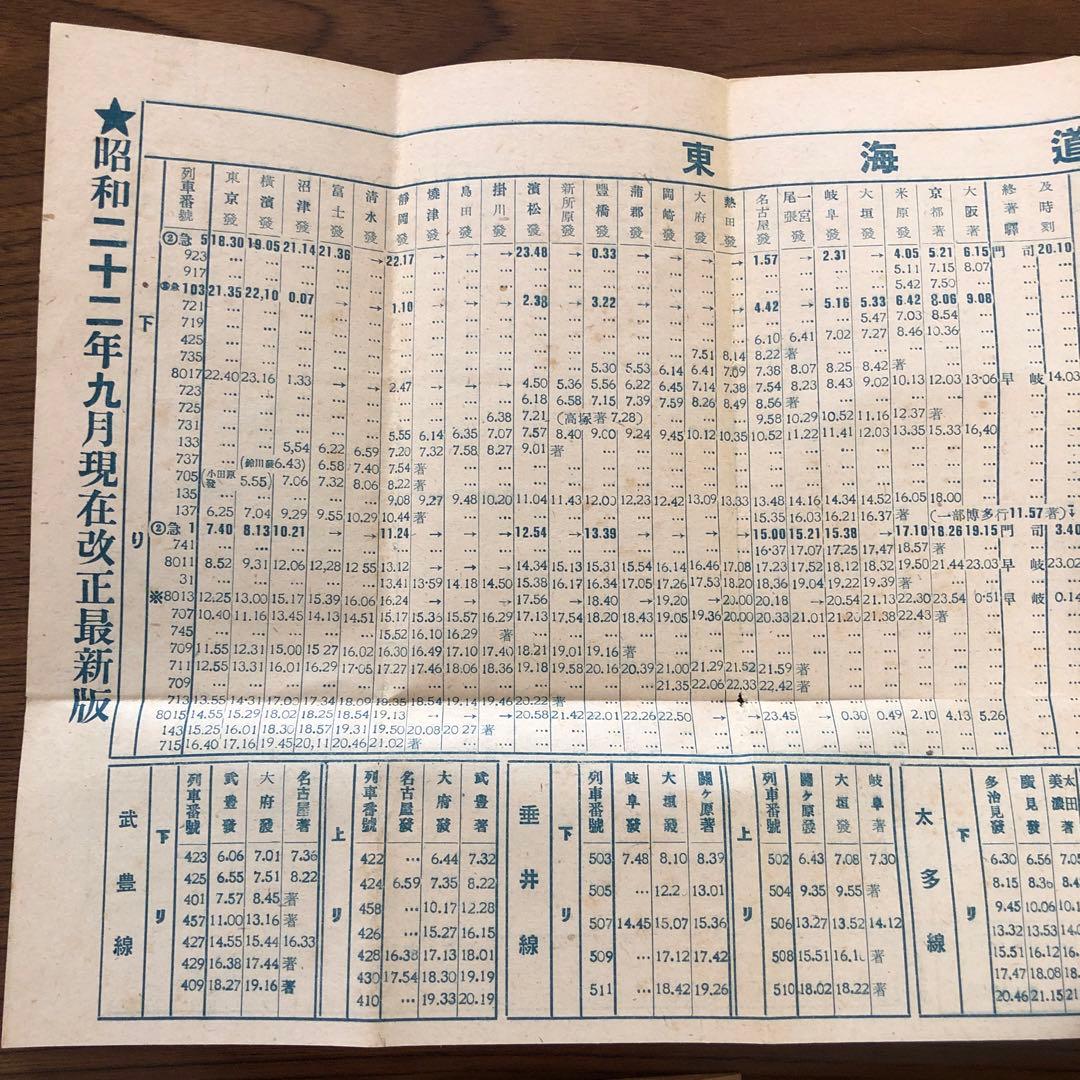 ★昭和二十二年九月現在改正最新版
東海道
下り
列車番號 東京發 橫濱發 沼津發 富士發 清水發 靜岡發 燒津發 島田發 掛川發 濱松發 新所原發 豐橋發 蒲郡發 岡崎發 大府發 熱田發 名古屋發 尾張一宮發 岐阜發 大垣發 米原發 京都著 大阪著 終著驛 及時刻
②急 5 18.30 19.05 21.14 21.36 → 22.17 → → → 23.48 … 0.33 → → → → 1.57 → 2.31 → 4.05 5.21 6.15 門司 20.10
923 … 5.11 7.15 8.07
917 … 5.42 7.50
103 21.35 22,10 0.07 → → 1.10 → → → 2.38 → 3.22 → → → → 4.42 → 5.16 5.33 6.42 8.06 9.08
721 … 5.47 7.03 8.54
719 … 6.10 6.41 7.02 7.27 8.46 10.36
425 … 7.51 8.14 8.22 著
735 … 5.30 5.53 6.14 6.41 7.09 7.38 8.07 8.25 8.42 著
8017 22.40 23.16 1.33 → → 2.47 → → → 4.50 5.36 5.56 6.22 6.45 7.14 7.38 7.54 8.23 8.43 9.02 10.13 12.03 13.06 早岐 14.03
723 … 6.18 6.58 7.15 7.39 7.59 8.26 8.49 8.56 著
725 … 6.38 7.21 (高塚著 7.28) … 9.58 10.29 10.52 11.16 12.37 著
731 … 5.55 6.14 6.35 7.07 7.57 8.40 9.00 9.24 9.45 10.12 10.35 10.52 11.22 11.41 12.03 13.35 15.33 16,40
133 … 5,54 6.22 6.59 7.20 7.32 7.58 8.27 9.01 著
737 … (鈴川發 6.43) 6.58 7.40 7.54 著
705 (小田原發 5.55) 7.06 7.32 8.06 8.22 著
135 … 9.08 9.27 9.48 10.20 11.04 11.43 12.00 12.23 12.42 13.09 13.33 13.48 14.16 14.34 14.52 16.05 18.00
137 6.25 7.04 9.29 9.55 10.29 10.44 著 … 15.35 16.03 16.21 16.37 著 (一部博多行11.57著)
②急 1 7.40 8.13 10.21 → → 11.24 → → → 12.54 → 13.39 → → → → 15.00 15.21 15.38 → 17.10 18.26 19.15 門司 3.40
741 … 16.37 17.07 17.25 17.47 18.57 著
8011 8.52 9.31 12.06 12.28 12.55 13.12 → → → 14.34 15.13 15.31 15.54 16.14 16.46 17.08 17.23 17.52 18.12 18.32 19.50 21.44 23.03 早岐 23.02
31 … 13.41 13.59 14.18 14.50 15.38 16.17 16.34 17.05 17.26 17.53 18.20 18.36 19.04 19.22 19.39 著
※8013 12.25 13.00 15.17 15.39 16.06 16.24 → → → 17.56 → 18.40 → 19.20 → 20.00 20.18 → 20.54 21.13 22.30 23.54 0.51 早岐 0.14
707 10.40 11.16 13.45 14.13 14.51 15.17 15.36 15.57 16.29 17.13 17.54 18.20 18.43 19.05 19.36 20.00 20.33 21.01 21.20 21.38 22.43 著
745 … 15.52 16.10 16.29 著
709 11.55 12.31 15.00 15.27 16.02 16.30 16.49 17.10 17.40 18.21 19.01 19.16 著
711 12.55 13.31 16.01 16.29 17.05 17.27 17.46 18.06 18.36 19.18 19.58 20.16 20.39 21.00 21.29 21.52 21.59 著
709 … 21.35 22.06 22.33 22.42 著
713 13.55 14.31 17.00 17.34 18.09 18.35 18.54 19.14 19.46 20.22 著
8015 14.55 15.29 18.02 18.25 18.54 19.13 → → → 20.58 21.42 22.01 22.26 22.50 → → 23.45 → 0.30 0.49 2.10 4.13 5.26
143 15.25 16.01 18.30 18.57 19.31 19.50 20.08 20 27 著
715 16.40 17.16 19.45 20,11 20.46 21.02 著
武豊線
下り
列車番號 武豊發 大府發 名古屋著
423 6.06 7.01 7.36
425 6.55 7.51 8.22
401 7.57 8.45 著
457 11.00 13.16 著
427 14.55 15.44 16.33
429 16.38 17.44 著
409 18.27 19.16 著
上り
列車番號 名古屋發 大府發 武豊著
422 … 6.44 7.32
424 6.59 7.35 8.22
458 … 10.17 12.28
426 … 15.27 16.15
428 16.38 17.13 18.01
430 17.54 18.30 19.19
410 … 19.33 20.19
垂井線
下り
列車番號 岐阜發 大垣發 關ヶ原著
503 7.48 8.10 8.39
505 … 12.2 13.01
507 14.45 15.07 15.36
509 … 17.12 17.42
511 … 18.42 19.26
上り
列車番號 關ヶ原發 大垣發 岐阜著
502 6.43 7.08 7.30
504 9.35 9.55 著
506 13.27 13.52 14.12
508 15.51 16.1 著
510 18.02 18.22 著
太多線
下り
多治見發 廣見發 美濃太田著
6.30 6.56 7.05
8.15 8.36 8.4
9.45 10.06 10.1
13.32 13.53 14.0
15.51 16.12 16.
17.47 18.08 18.
20.46 21.15 21